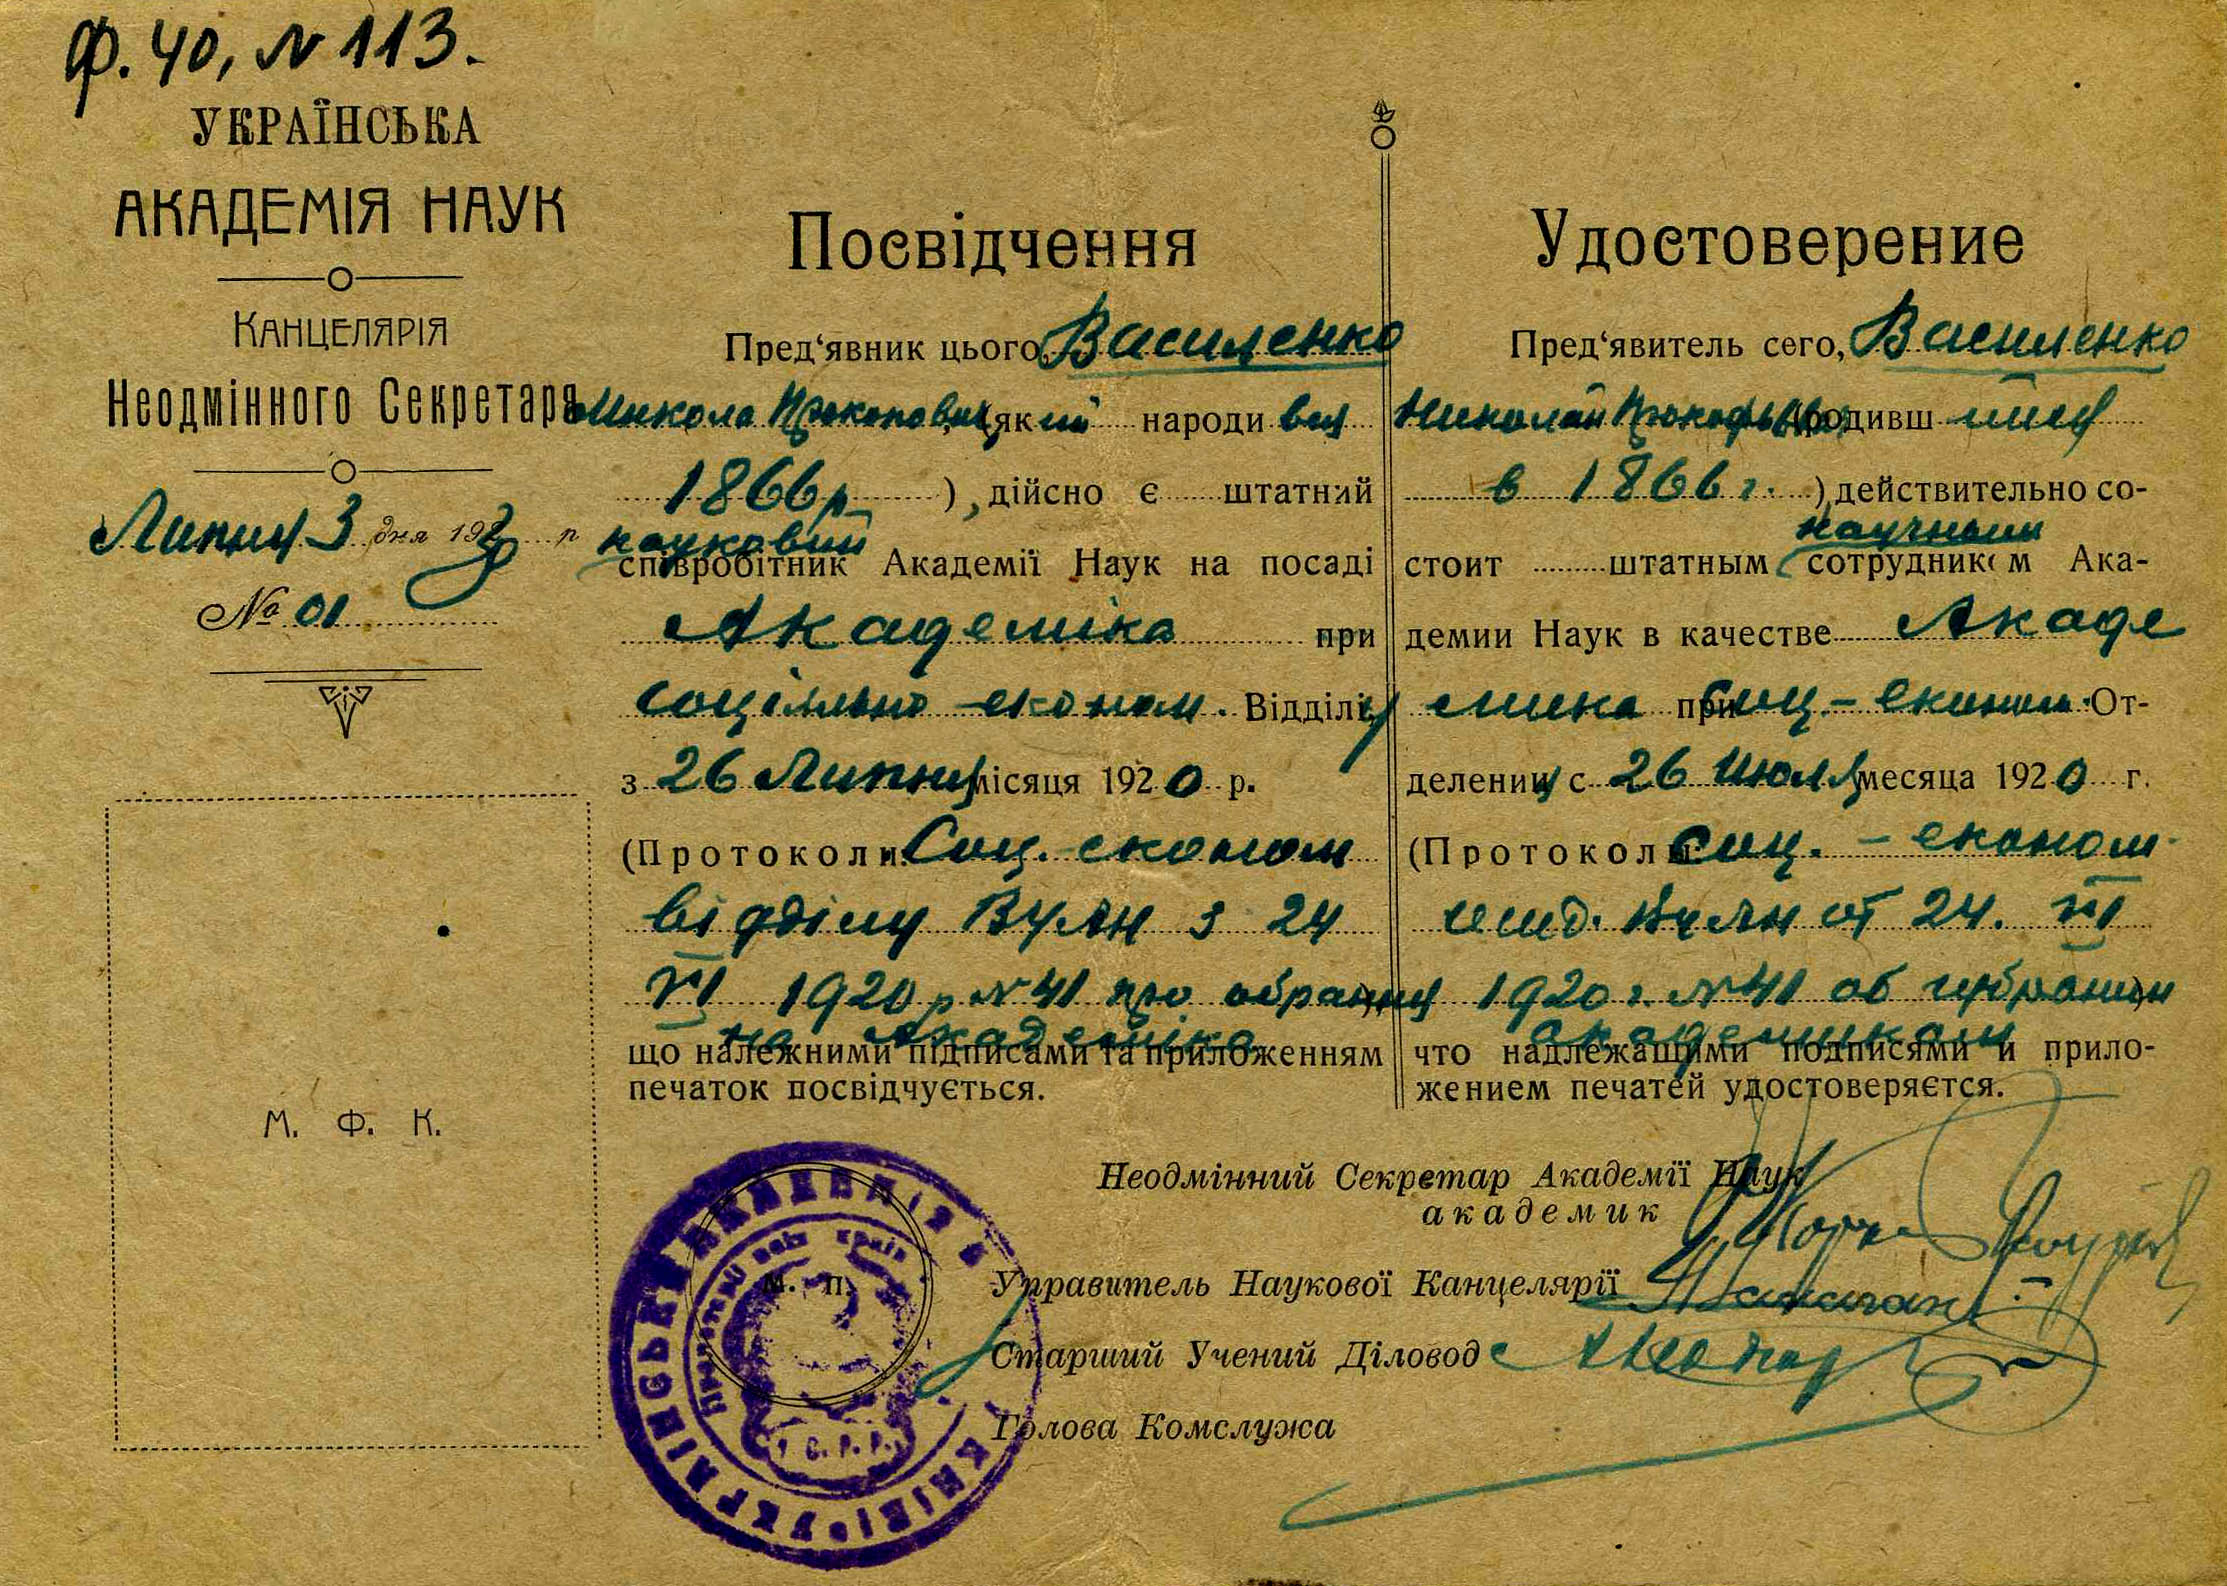 Ф. 40, N 113.
УКРАЇНСЬКА
АКАДЕМІЯ НАУК
КАНЦЕЛЯРІЯ
Неодмінного Секретаря
Липня 3 дня 192 р
№ 01
М. Ф. К.
Посвідчення
Пред'явник цього, Василенко
Микола Прокопович, (який народився
1866 р. ), дійсно є штатний
науковий
співробітник Академії Наук на посаді
Академіка при
соціяльно-економ. Відділі
з 26 Липня місяця 1920 р.
(Протокол Соц.-економ
відділу ВУАН з 24
VI 1920 р N 41 про обрання
на Академіка
що належними підписами та приложенням
печаток посвідчується.
Удостоверение
Пред'явитель сего, Василенко
Николай Прокофьевич (родившийся
в 1866 г. ) действительно со-
научным
стоит штатным сотрудником Ака-
демии Наук в качестве Акаде
мика при Соц.-економ. От-
делении с 26 Июля месяца 1920 г.
(Протокол Соц.-економ.
отд. ВУАН от 24. VI
1920 г. N 41 об избрании
академиком
что надлежащими подписями и прило-
жением печатей удостоверяєтся.
Неодмінний Секретар Академії Наук
академик
Управитель Наукової Канцелярії
Старший Учений Діловод
Голова Комслужа
М. П.